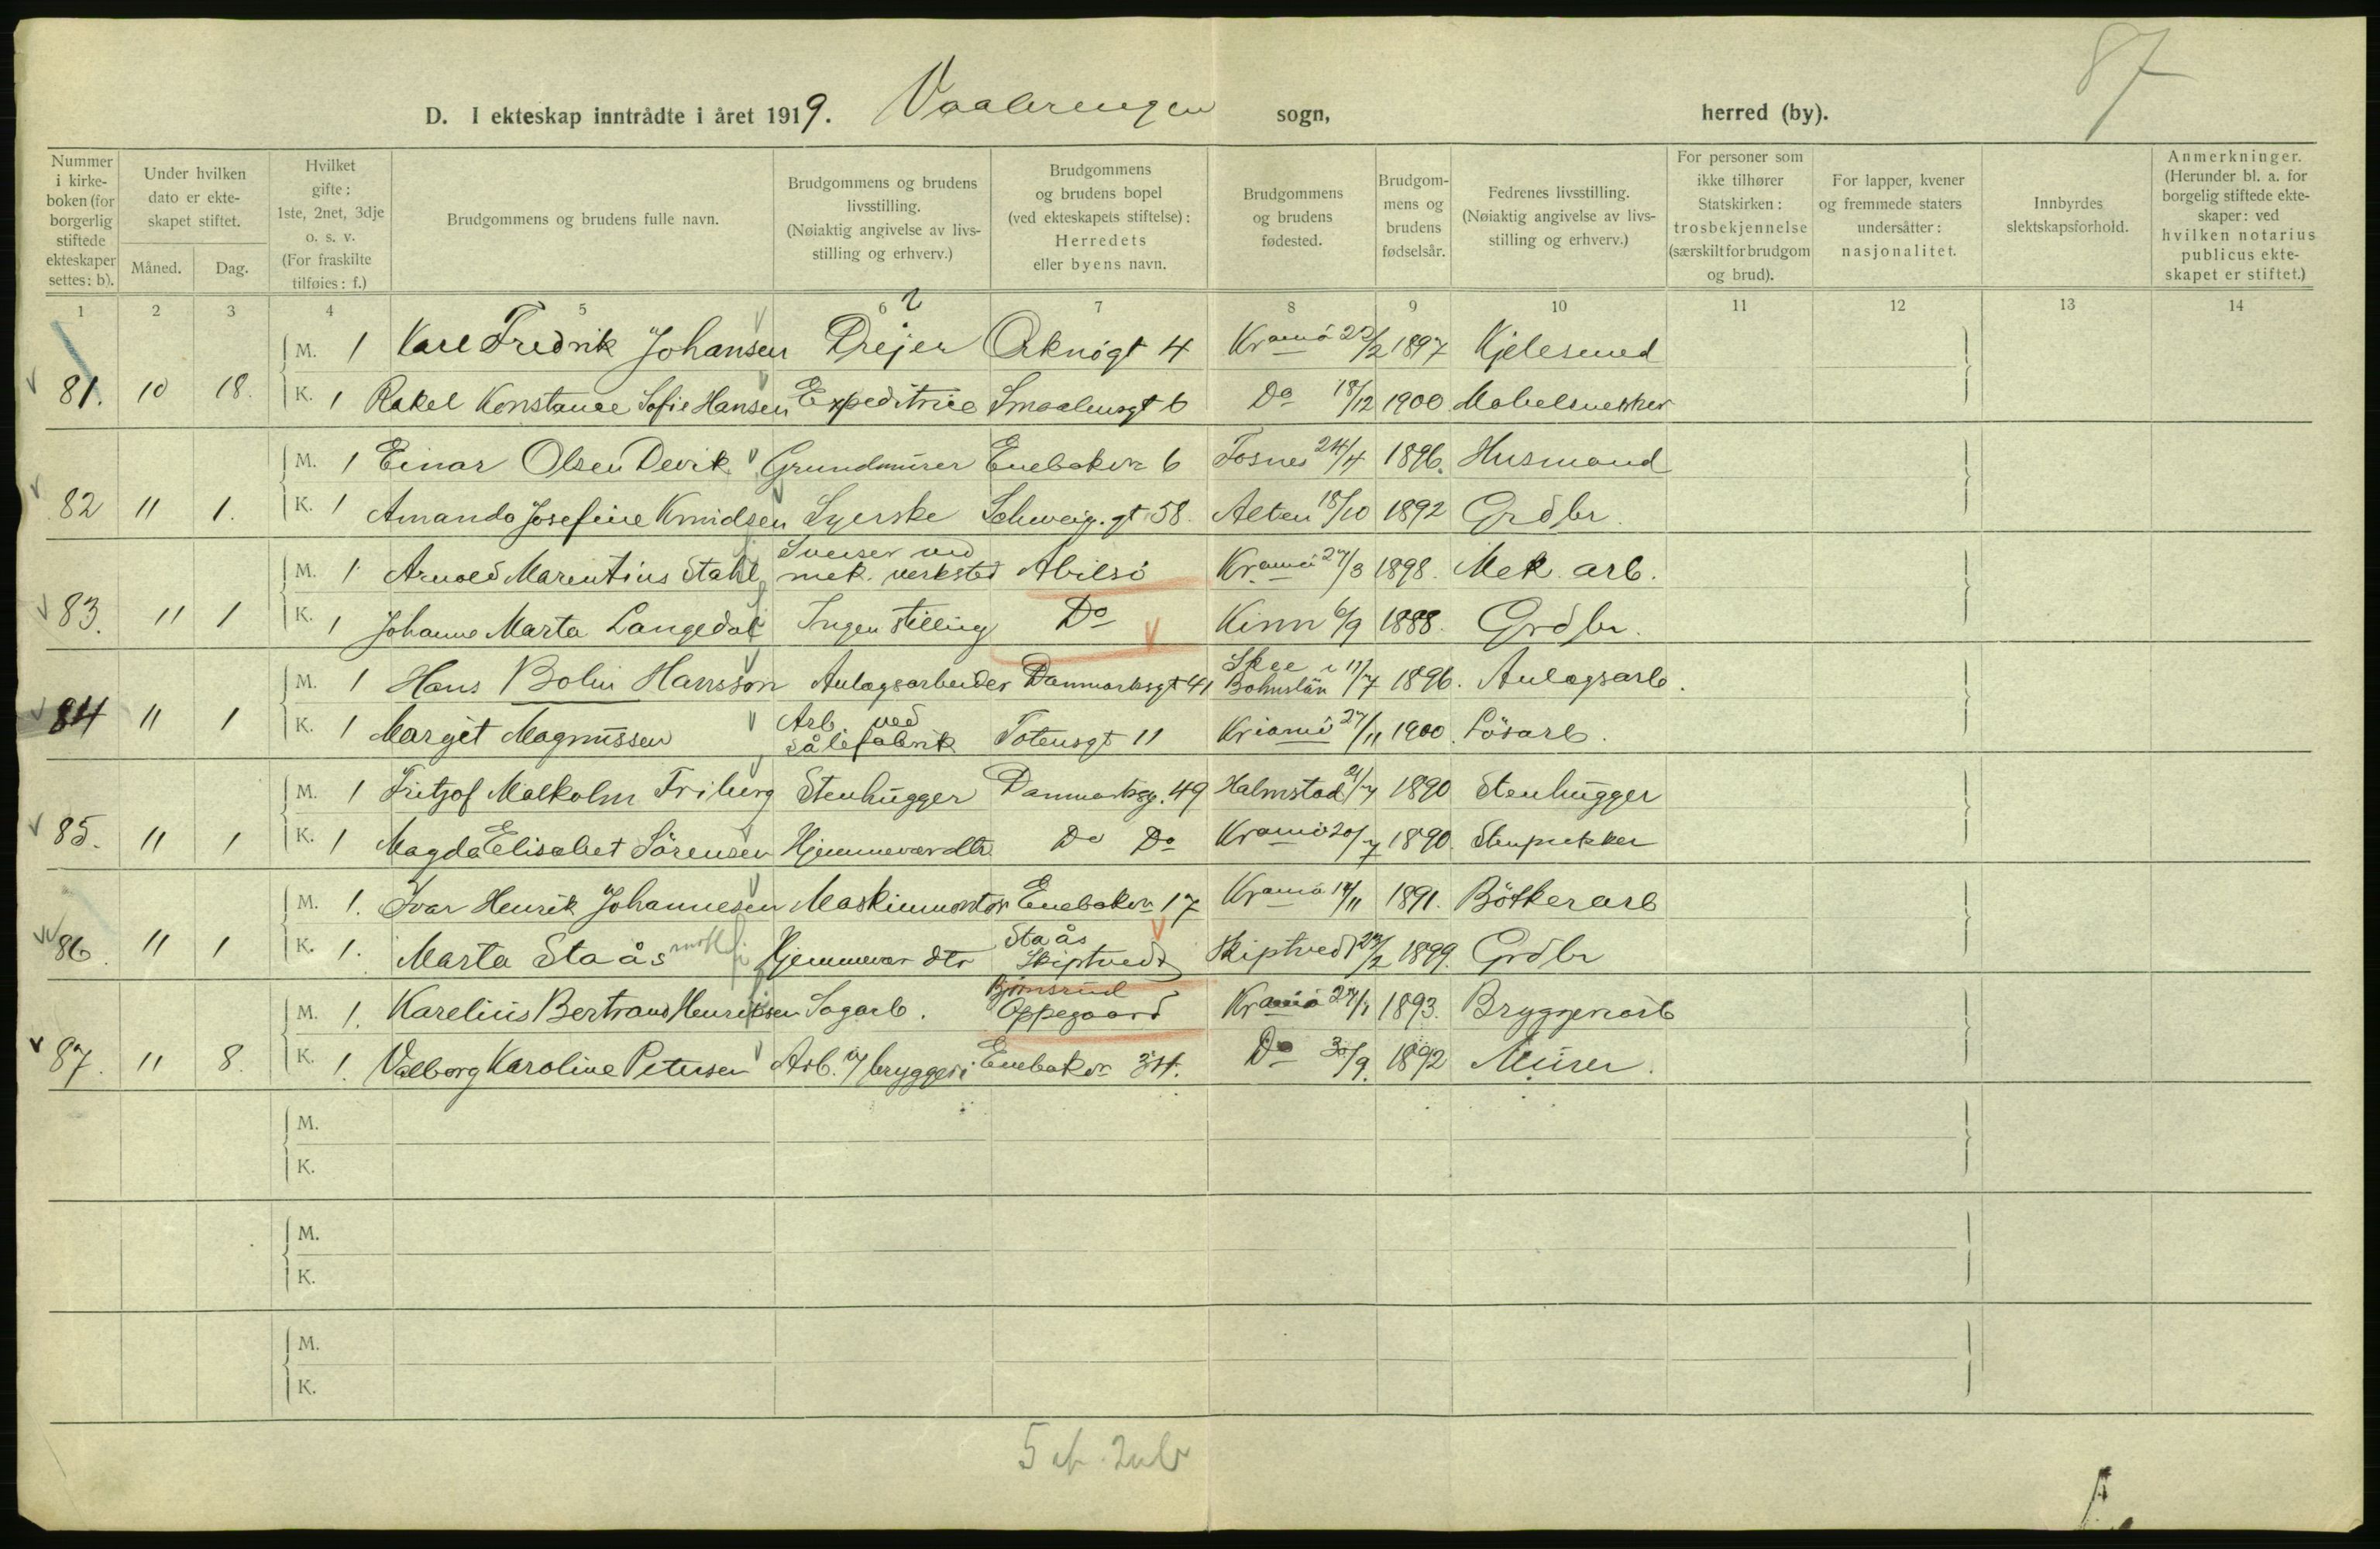 87
D. I ekteskap inntrådte i året 1919. Vaalerengen sogn, herred (by).
Nummer i kirkeboken (for borgerlig stiftede ekteskaper settes: b).
Under hvilken dato er ekteskapet stiftet.
Måned. Dag.
Hvilket gifte: 1ste, 2net, 3dje o. s. v. (For fraskilte tilføies: f.)
Brudgommens og brudens fulle navn.
Brudgommens og brudens livsstilling. (Nøiaktig angivelse av livsstilling og erhverv.)
Brudgommens og brudens bopel (ved ekteskapets stiftelse): Herredets eller byens navn.
Brudgommens og brudens fødested.
Brudgommens og brudens fødselsår.
Fedrenes livsstilling. (Nøiaktig angivelse av livsstilling og erhverv.)
For personer som ikke tilhører Statskirken: trosbekjennelse (særskilt for brudgom og brud).
For lapper, kvener og fremmede staters undersåtter: nasjonalitet.
Innbyrdes slektskapsforhold.
Anmerkninger. (Herunder bl. a. for borgelig stiftede ekteskaper: ved hvilken notarius publicus ekteskapet er stiftet.)
1 2 3 4 5 6 7 8 9 10 11 12 13 14
M. 1 Karl Fredrik Johansen Drejer Orknögt 4 Kr.ania 22/2 1897 Kjelesmed
81. 10 18. K. 1 Rakel Konstanse Sofie Hansen Expeditrice Smaalensgt 6 Do 18/12 1900 Mobelsnekker
M. 1 Einar Olsen Devik Grundmurer Enebakvn 6 Fosnes 24/4 1896. Husmand
82 11 1. K. 1 Amanda Josefine Knudsen Syerske Schweig.gt 58. Alten 18/10 1892 Grdbr.
M. 1 Arnold Marentius Stahl Sveiser ved mek. verksted Abilsö Kr.ania 27/3 1898. Mek. arb.
83. 11 1 K. 1 Johanne Marta Langedal Ingen stilling Do Kinn 6/9 1888. Grdbr.
M. 1 Hans Bolin Hansson Anlagsarbeider Danmarksgt 41 Skee i Bohuslän 11/7 1896. Anlagsarb.
84 11 1 K. 1 Margit Magnussen Arb. ved sålefabrik Totensgt 11 Kr.ania 27/11 1900. Lösarb.
M. 1 Fritjof Malkolm Friberg Stenhugger Danmarksg. 49 Halmstad 21/7 1890 Stenhugger
85. 11 1 K. 1 Magda Elisabet Sörensen Hjemmevær. dtr Do Do Kr.ania 20/7 1890. Stenpukker
M. 1. Ivar Henrik Johannesen Maskinmontör Enebakvn 17 Kr.ania 14/11 1891. Bötkerarb
86. 11 1 K. 1. Marta Staås Hjemmevær dtr Staås Skiptvedt Skiptvedt 23/2 1899. Grdbr
M. 1. Karelius Bertrand Henriksen Sagarb. Björnsrud Oppegaard Kr.ania 27/1 1893. Bryggeriarb
87. 11 8. K. 1. Valborg Karoline Petersen Arb. v/ bryggeri Enebakvn 34. Do 30/9. 1892 Murer.
M.
K.
M.
K.
M.
K.